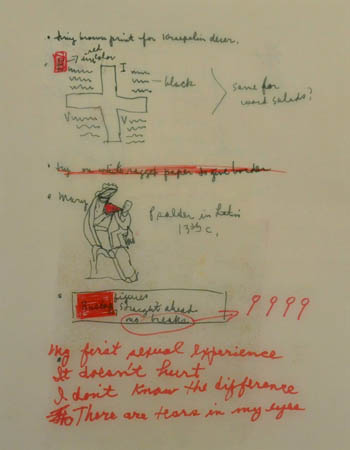 • try brown print for Kraepelin descr.
• red
in color
I
black
same for
word salads?
V
V
• try on white ragged paper to give border
• Mary
Psalter in Latin
13th c.
• figures
straight ahead
no breaks
9 9 9 9
My first sexual experience
It doesn't hurt
I don't know the difference
There are tears in my eyes